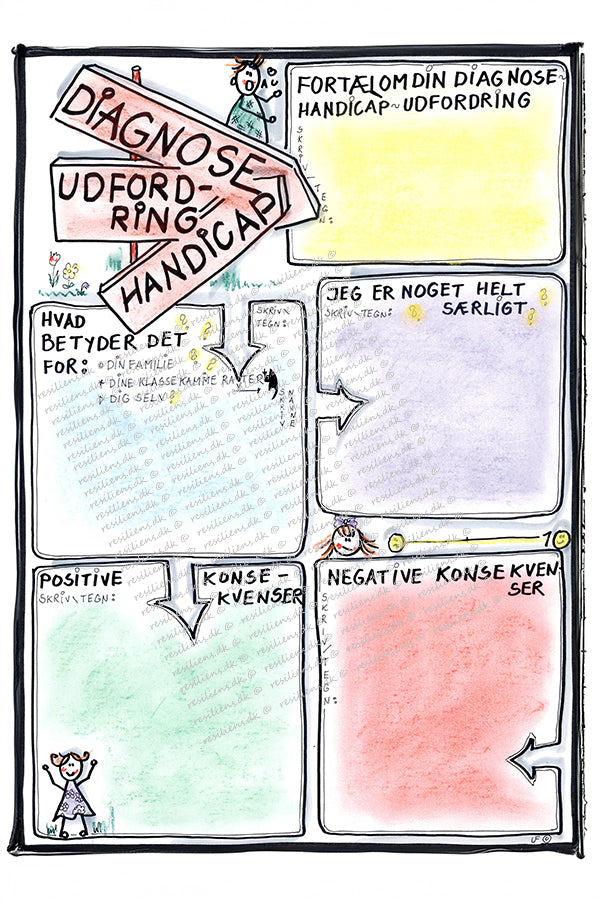 DIAGNOSE
UDFORD-
RING
HANDICAP
A B
FORTÆLOM DIN DIAGNOSE~
HANDICAP~UDFORDRING
SKRIV/TEGN:
HVAD
BETYDER DET
FOR:
DIN FAMILIE
+ DINE KLASSEKAMMERATER
DIG SELV
SKRIV\
TEGN:
SKRIV
NAVNE
JEG ER NOGET HELT
SKRIV\TEGN: SÆRLIGT
POSITIVE KONSE-
SKRIV\TEGN: KVENSER
1
NEGATIVE KONSEKVEN-
SER
SKRIV/TEGN:
resiliens.dk ©